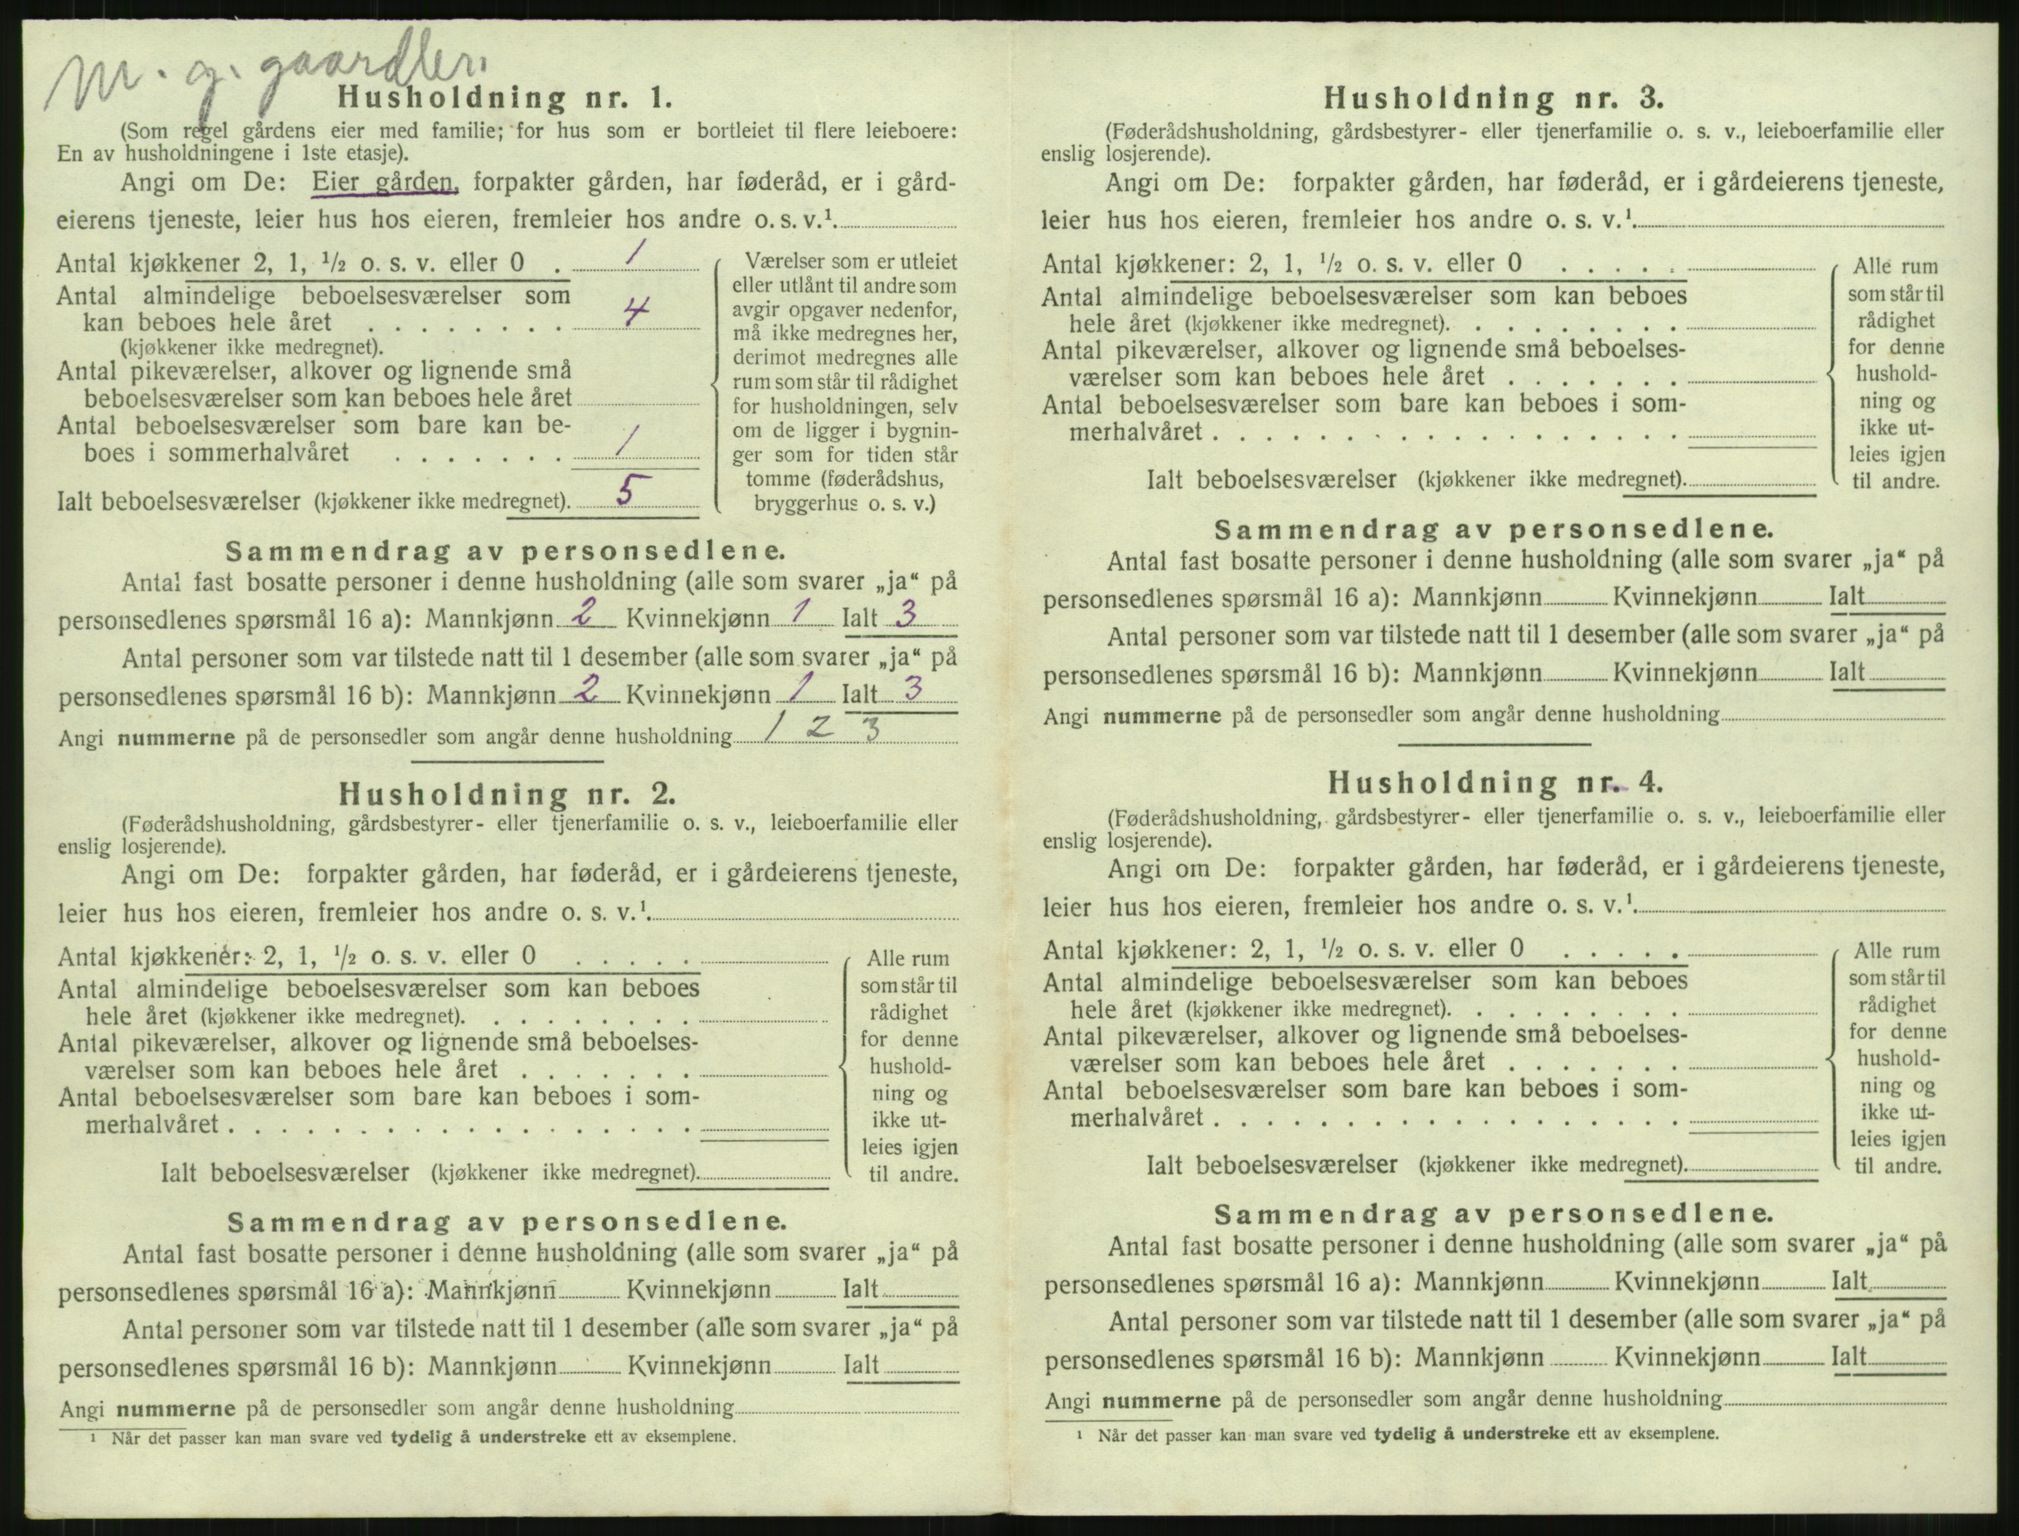 M. g. gaardbr.
Husholdning nr. 1.
(Som regel gårdens eier med familie; for hus som er bortleiet til flere leieboere:
En av husholdningene i 1ste etasje).
Angi om De: Eier gården, forpakter gården, har føderåd, er i gård-
eierens tjeneste, leier hus hos eieren, fremleier hos andre o. s. v.¹.
Antal kjøkkener 2, 1, ½ o. s. v. eller 0 . 1
Antal almindelige beboelsesværelser som
kan beboes hele året . . . . . . . . 4
(kjøkkener ikke medregnet).
Antal pikeværelser, alkover og lignende små
beboelsesværelser som kan beboes hele året
Antal beboelsesværelser som bare kan be-
boes i sommerhalvåret . . . . . . . 1
Ialt beboelsesværelser (kjøkkener ikke medregnet). 5
Værelser som er utleiet
eller utlånt til andre som
avgir opgaver nedenfor,
må ikke medregnes her,
derimot medregnes alle
rum som står til rådighet
for husholdningen, selv
om de ligger i bygnin-
ger som for tiden står
tomme (føderådshus,
bryggerhus o. s. v.)
Sammendrag av personsedlene.
Antal fast bosatte personer i denne husholdning (alle som svarer „ja“ på
personsedlenes spørsmål 16 a): Mannkjønn 2 Kvinnekjønn 1 Ialt 3
Antal personer som var tilstede natt til 1 desember (alle som svarer „ja“ på
personsedlenes spørsmål 16 b): Mannkjønn 2 Kvinnekjønn 1 Ialt 3
Angi nummerne på de personsedler som angår denne husholdning 1 2 3
Husholdning nr. 2.
(Føderådshusholdning, gårdsbestyrer- eller tjenerfamilie o. s. v., leieboerfamilie eller
enslig losjerende).
Angi om De: forpakter gården, har føderåd, er i gårdeierens tjeneste,
leier hus hos eieren, fremleier hos andre o. s. v.¹.
Antal kjøkkener: 2, 1, ½ o. s. v. eller 0 . . . . .
Antal almindelige beboelsesværelser som kan beboes
hele året (kjøkkener ikke medregnet). . . . . . . . .
Antal pikeværelser, alkover og lignende små beboelses-
værelser som kan beboes hele året . . . . . . .
Antal beboelsesværelser som bare kan beboes i som-
merhalvåret . . . . . . . . . . . . . . . . . .
Ialt beboelsesværelser (kjøkkener ikke medregnet).
Alle rum
som står til
rådighet
for denne
hushold-
ning og
ikke ut-
leies igjen
til andre.
Sammendrag av personsedlene.
Antal fast bosatte personer i denne husholdning (alle som svarer „ja“ på
personsedlenes spørsmål 16 a): Mannkjønn Kvinnekjønn Ialt
Antal personer som var tilstede natt til 1 desember (alle som svarer „ja“ på
personsedlenes spørsmål 16 b): Mannkjønn Kvinnekjønn Ialt
Angi nummerne på de personsedler som angår denne husholdning
¹ Når det passer kan man svare ved tydelig å understreke ett av eksemplene.
Husholdning nr. 3.
(Føderådshusholdning, gårdsbestyrer- eller tjenerfamilie o. s. v., leieboerfamilie eller
enslig losjerende).
Angi om De: forpakter gården, har føderåd, er i gårdeierens tjeneste,
leier hus hos eieren, fremleier hos andre o. s. v.¹.
Antal kjøkkener: 2, 1, ½ o. s. v. eller 0 . . . . .
Antal almindelige beboelsesværelser som kan beboes
hele året (kjøkkener ikke medregnet). . . . . . . . .
Antal pikeværelser, alkover og lignende små beboelses-
værelser som kan beboes hele året . . . . . . .
Antal beboelsesværelser som bare kan beboes i som-
merhalvåret . . . . . . . . . . . . . . . . . .
Ialt beboelsesværelser (kjøkkener ikke medregnet).
Alle rum
som står til
rådighet
for denne
hushold-
ning og
ikke ut-
leies igjen
til andre.
Sammendrag av personsedlene.
Antal fast bosatte personer i denne husholdning (alle som svarer „ja“ på
personsedlenes spørsmål 16 a): Mannkjønn Kvinnekjønn Ialt
Antal personer som var tilstede natt til 1 desember (alle som svarer „ja“ på
personsedlenes spørsmål 16 b): Mannkjønn Kvinnekjønn Ialt
Angi nummerne på de personsedler som angår denne husholdning
Husholdning nr. 4.
(Føderådshusholdning, gårdsbestyrer- eller tjenerfamilie o. s. v., leieboerfamilie eller
enslig losjerende).
Angi om De: forpakter gården, har føderåd, er i gårdeierens tjeneste,
leier hus hos eieren, fremleier hos andre o. s. v.¹.
Antal kjøkkener: 2, 1, ½ o. s. v. eller 0 . . . . .
Antal almindelige beboelsesværelser som kan beboes
hele året (kjøkkener ikke medregnet). . . . . . . . .
Antal pikeværelser, alkover og lignende små beboelses-
værelser som kan beboes hele året . . . . . . .
Antal beboelsesværelser som bare kan beboes i som-
merhalvåret . . . . . . . . . . . . . . . . . .
Ialt beboelsesværelser (kjøkkener ikke medregnet).
Alle rum
som står til
rådighet
for denne
hushold-
ning og
ikke ut-
leies igjen
til andre.
Sammendrag av personsedlene.
Antal fast bosatte personer i denne husholdning (alle som svarer „ja“ på
personsedlenes spørsmål 16 a): Mannkjønn Kvinnekjønn Ialt
Antal personer som var tilstede natt til 1 desember (alle som svarer „ja“ på
personsedlenes spørsmål 16 b): Mannkjønn Kvinnekjønn Ialt
Angi nummerne på de personsedler som angår denne husholdning
¹ Når det passer kan man svare ved tydelig å understreke ett av eksemplene.